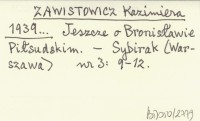 ZAWISTOWICZ Kazimiera
1939... Jeszcze o Bronisławie
Piłsudskim. – Sybirak (War-
szawa) nr 3: 9-12.